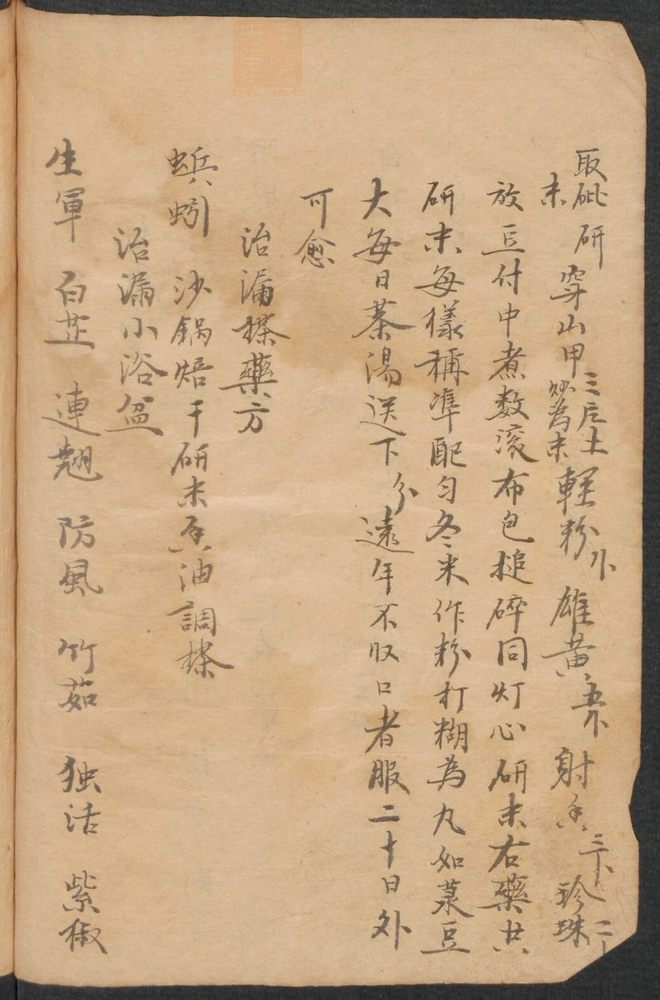 取砒研末 穿山甲 三片土炒為末 輕粉 雄黃 射香 珍珠
放豆付中煮数滚布包搥碎同灯心研末右藥共
研末每樣稱準配匀冬米作粉打糊為丸如菉豆
大每日茶湯送下 遠年不收口者服二十日外
可愈
治漏搽藥方
蚯蚓 沙鍋焙干研末香油調搽
治漏小浴盆
生軍 白芷 連翹 防風 竹茹 独活 紫椒